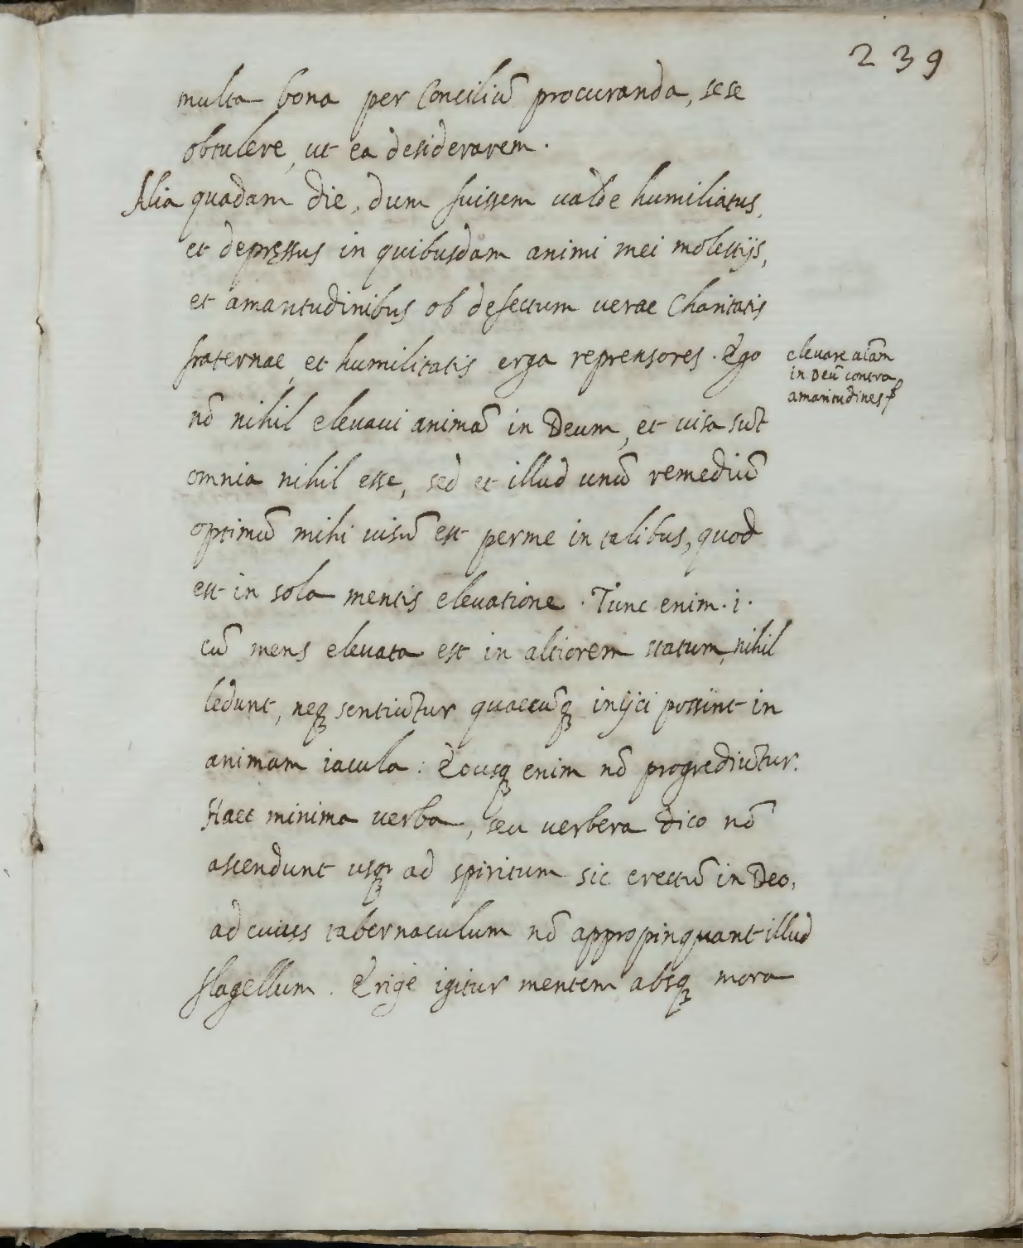 239
multa bona per Conciliũ procuranda, sese
obtulere, ut ea desiderarem.
Alia quadam die, dum fuissem valde humiliatus,
et depręssus in quibusdam animi mei molestijs,
et amaritudinibus ob defectum verae Charitatis
fraternae, et humilitatis erga reprensores. Ego
nõ nihil elevavi animã in Deum, et visa sũt
omnia nihil esse, sed et illud unũ remediũ
optimũ mihi visũ est per me in talibus, quod
est in sola mentis elevatione. Tunc enim .i.
cũ mens elevata est in altiorem statum, nihil
ledunt, neq; sentiũtur quaecũq; inijci possint in
animam iacula: Eousq; enim nõ progrediũtur.
Haec minima verba, seu verbera dico nõ
ascendunt usq; ad spiritum sic erectũ in Deo,
ad cuius tabernaculum nõ appropinquant illud
flagellum. Erige igitur mentem absq; mora
elevare aĩam
in Deũ contra
amaritudines